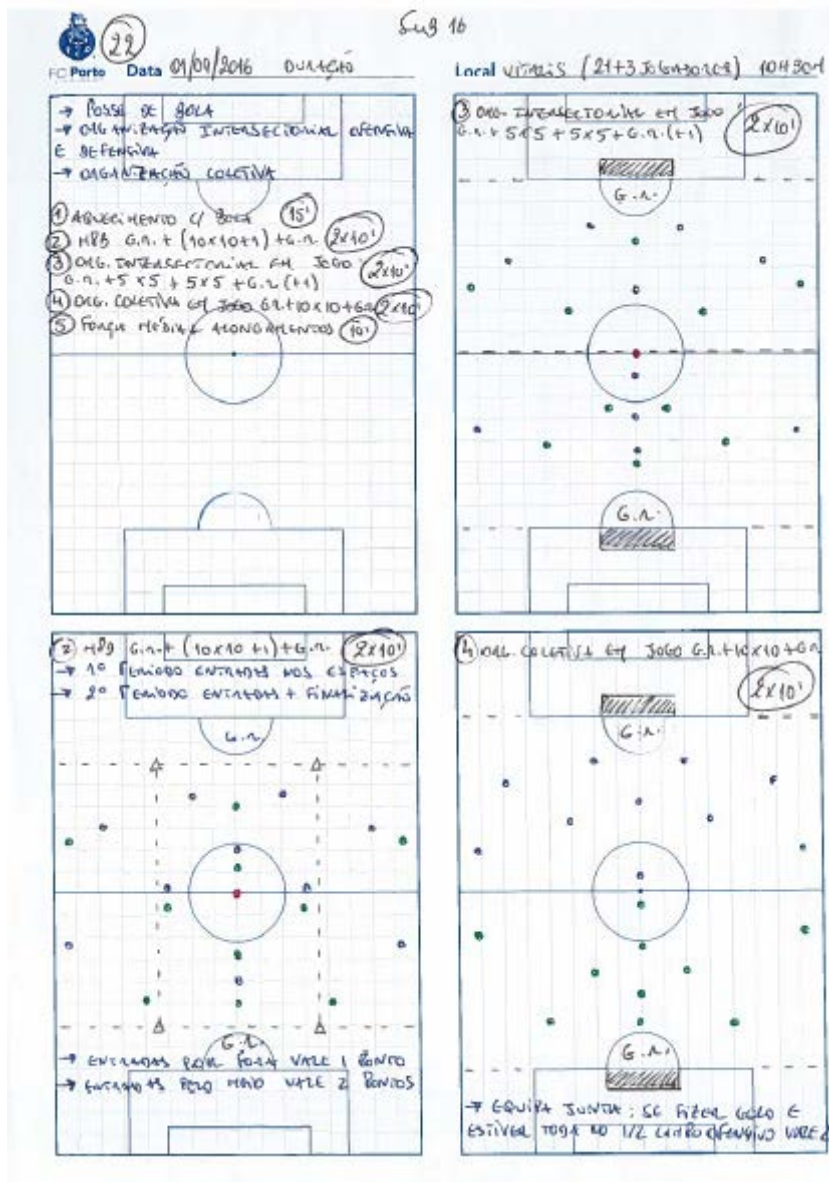 Sub 16
22
FC Porto Data 01/09/2016 DURAÇÃO
Local VITALIS (21+3 JOGADORES) 10H30M
→ POSSE DE BOLA
→ ORGANIZAÇÃO INTERSECTORIAL OFENSIVA
E DEFENSIVA
→ ORGANIZAÇÃO COLETIVA
① AQUECIMENTO C/ BOLA 15'
② MPB G.R. + (10x10+1) + G.R. 2x10'
③ ORG. INTERSECTORIAL EM JOGO: 2x10'
G.R. + 5x5 + 5x5 + G.R (+1)
④ ORG. COLETIVA EM JOGO GR+10x10+GR 2x10'
⑤ FORÇA MÉDIA E ALONGAMENTOS 10'
③ ORG. INTERSECTORIAL EM JOGO:
G.R. + 5x5 + 5x5 + G.R. (+1) 2x10'
G.R.
G.R.
② MPB G.R. + (10x10 +1) + G.R. 2x10'
→ 1º PERÍODO ENTRADAS NOS ESPAÇOS
→ 2º PERÍODO ENTRADAS + FINALIZAÇÃO
G.R.
G.R.
→ ENTRADAS POR FORA VALE 1 PONTO
→ ENTRADAS PELO MEIO VALE 2 PONTOS
④ ORG. COLETIVA EM JOGO G.R.+10x10+GR
2x10'
G.R.
G.R.
→ EQUIPA JUNTA: SE FIZER GOLO E
ESTIVER TODA NO 1/2 CAMPO OFENSIVO VALE 2